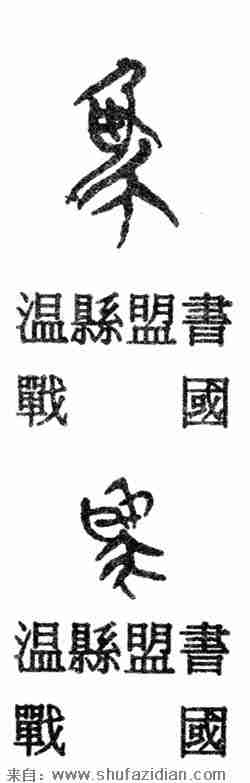 温縣盟書
戰國
温縣盟書
戰國
来自：www.shufazidian.com